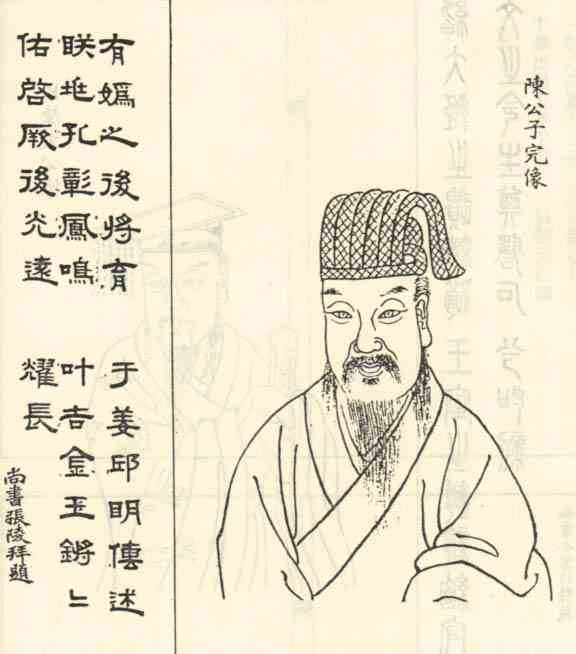 陳公子完像
有媯之後將育于姜邱明傳述
眹兆孔彰鳳鳴叶吉金玉鏘〻
佑啓厥後光遠耀長
尚書張陵拜題